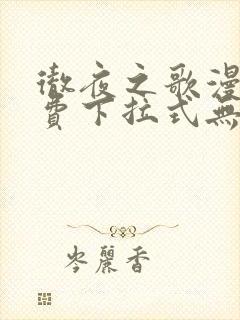 徹夜之歌漫
費下拉式無
岑麗香